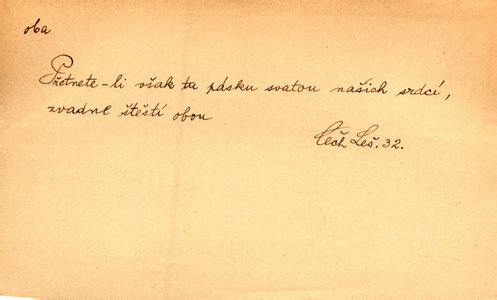 oba
Přetnete-li však ta pásku svatou našich srdcí,
zvadne štěstí obou
Čech Leš. 32.